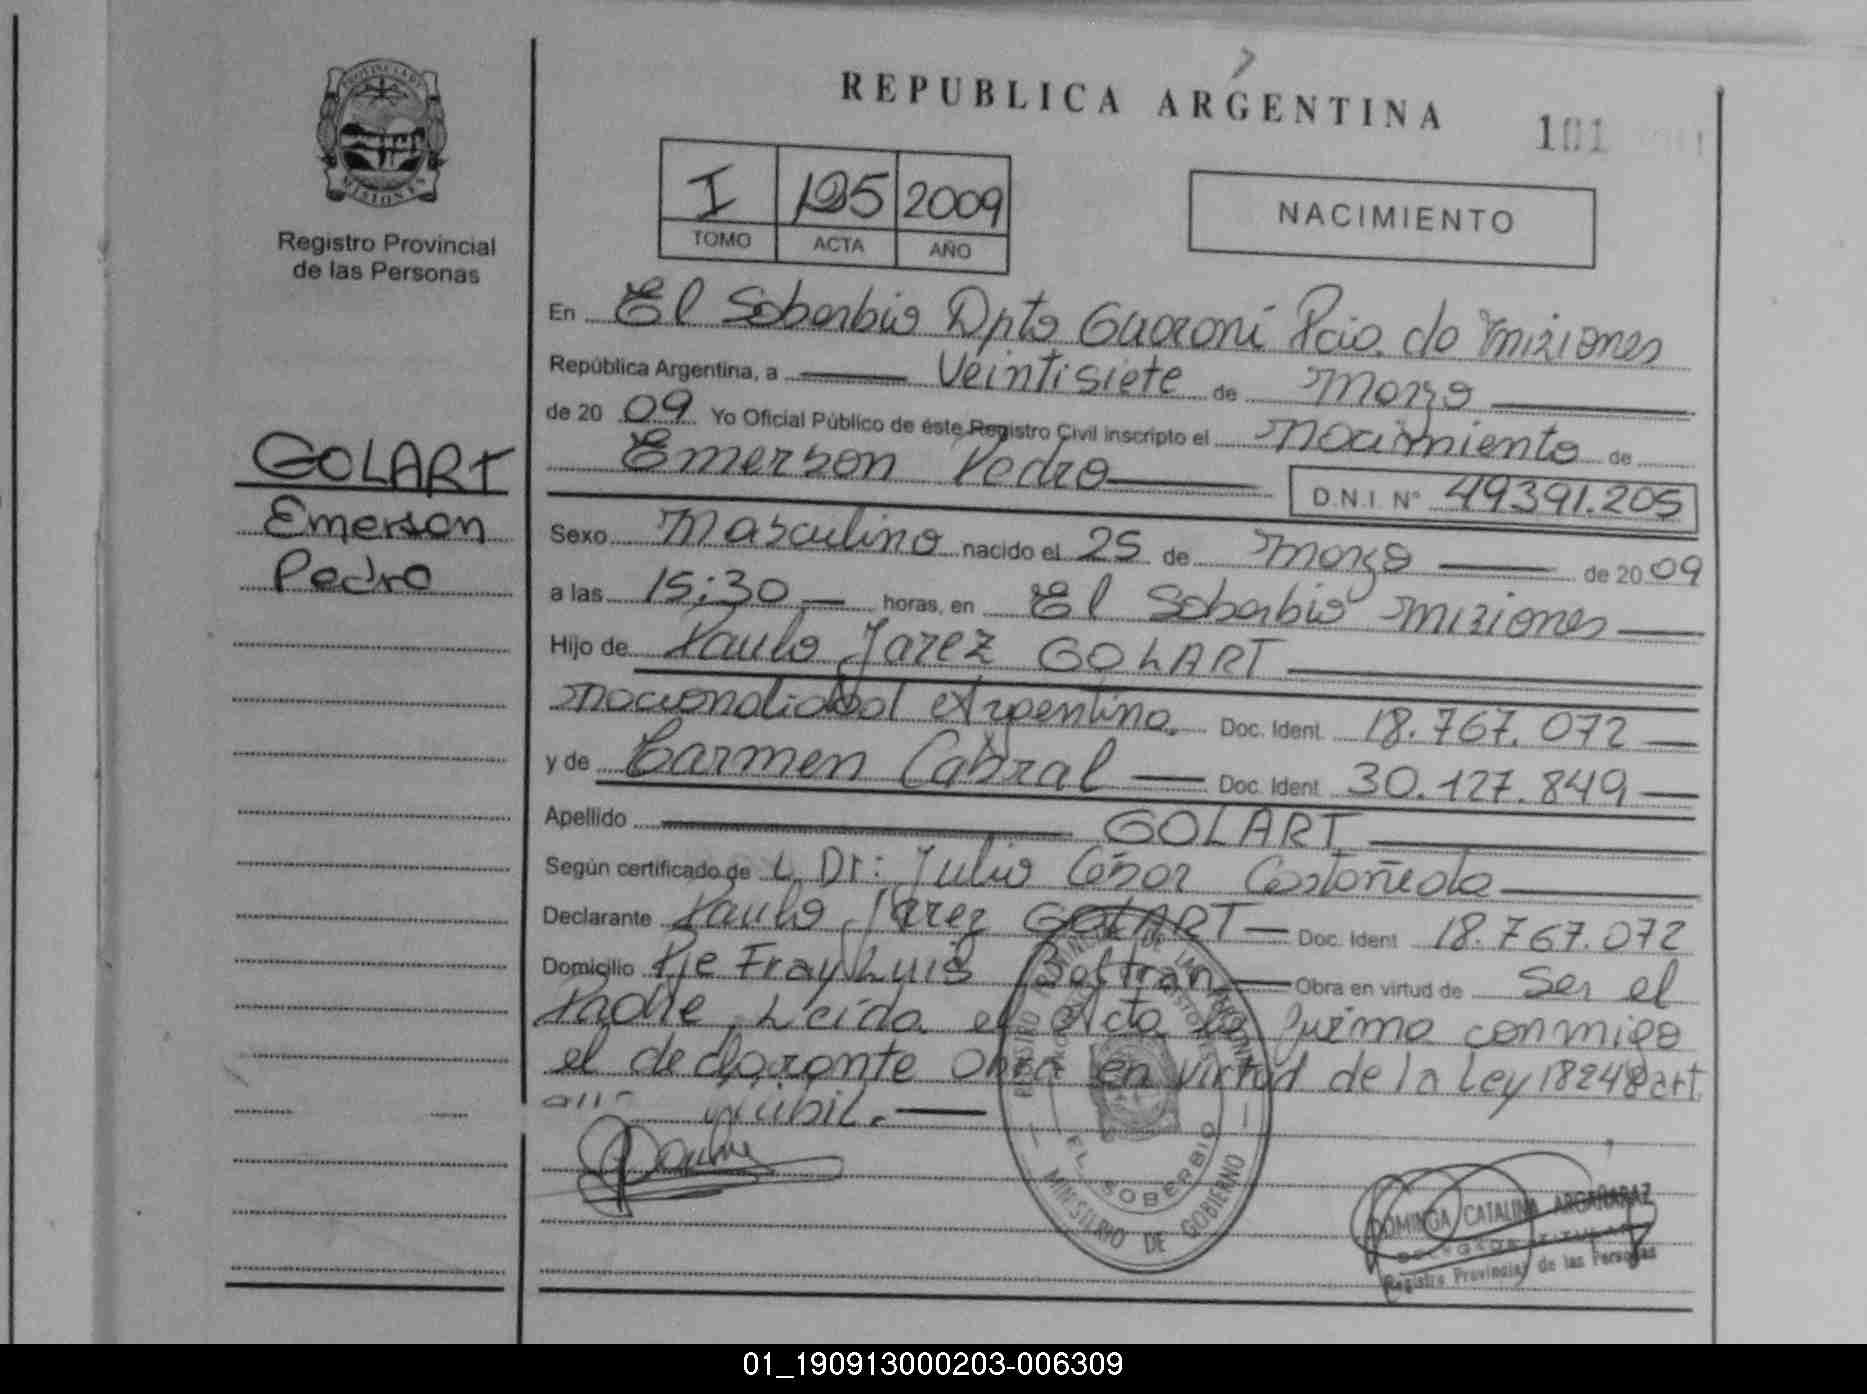 REPUBLICA ARGENTINA
101
PROVINCIA DE
MISIONES
Registro Provincial
de las Personas
I 195 2009
TOMO ACTA AÑO
NACIMIENTO
En El Soberbio Dpto Guaraní Pcia. de Misiones
República Argentina, a Veintisiete de Marzo
de 20 09 Yo Oficial Público de éste Registro Civil inscripto el Nacimiento de
Emerson Pedro
D.N.I. N° 49391.205
GOLART
Emerson
Pedro
Sexo Masculino nacido el 25 de Marzo de 20 09
a las 15:30 horas, en El Soberbio Misiones
Hijo de Paulo Jarez GOLART
Nacionalidad Argentina. Doc. Ident. 18.767.072
y de Carmen Cabral Doc. Ident. 30.127.849
Apellido GOLART
Según certificado de L Dr: Julio César Castañeda
Declarante Paulo Jarez GOLART Doc. Ident. 18.767.072
Domicilio Pje Fray Luis Beltran Obra en virtud de Ser el
Padre, Leída el Acta la firma conmigo
el declarante Obra en virtud de la Ley 18248 art.
EL SOBERBIO
MINISTERIO DE GOBIERNO
DOMINGA CATALINA ARGAÑARAZ
Registro Provincial de las Personas
01_190913000203-006309